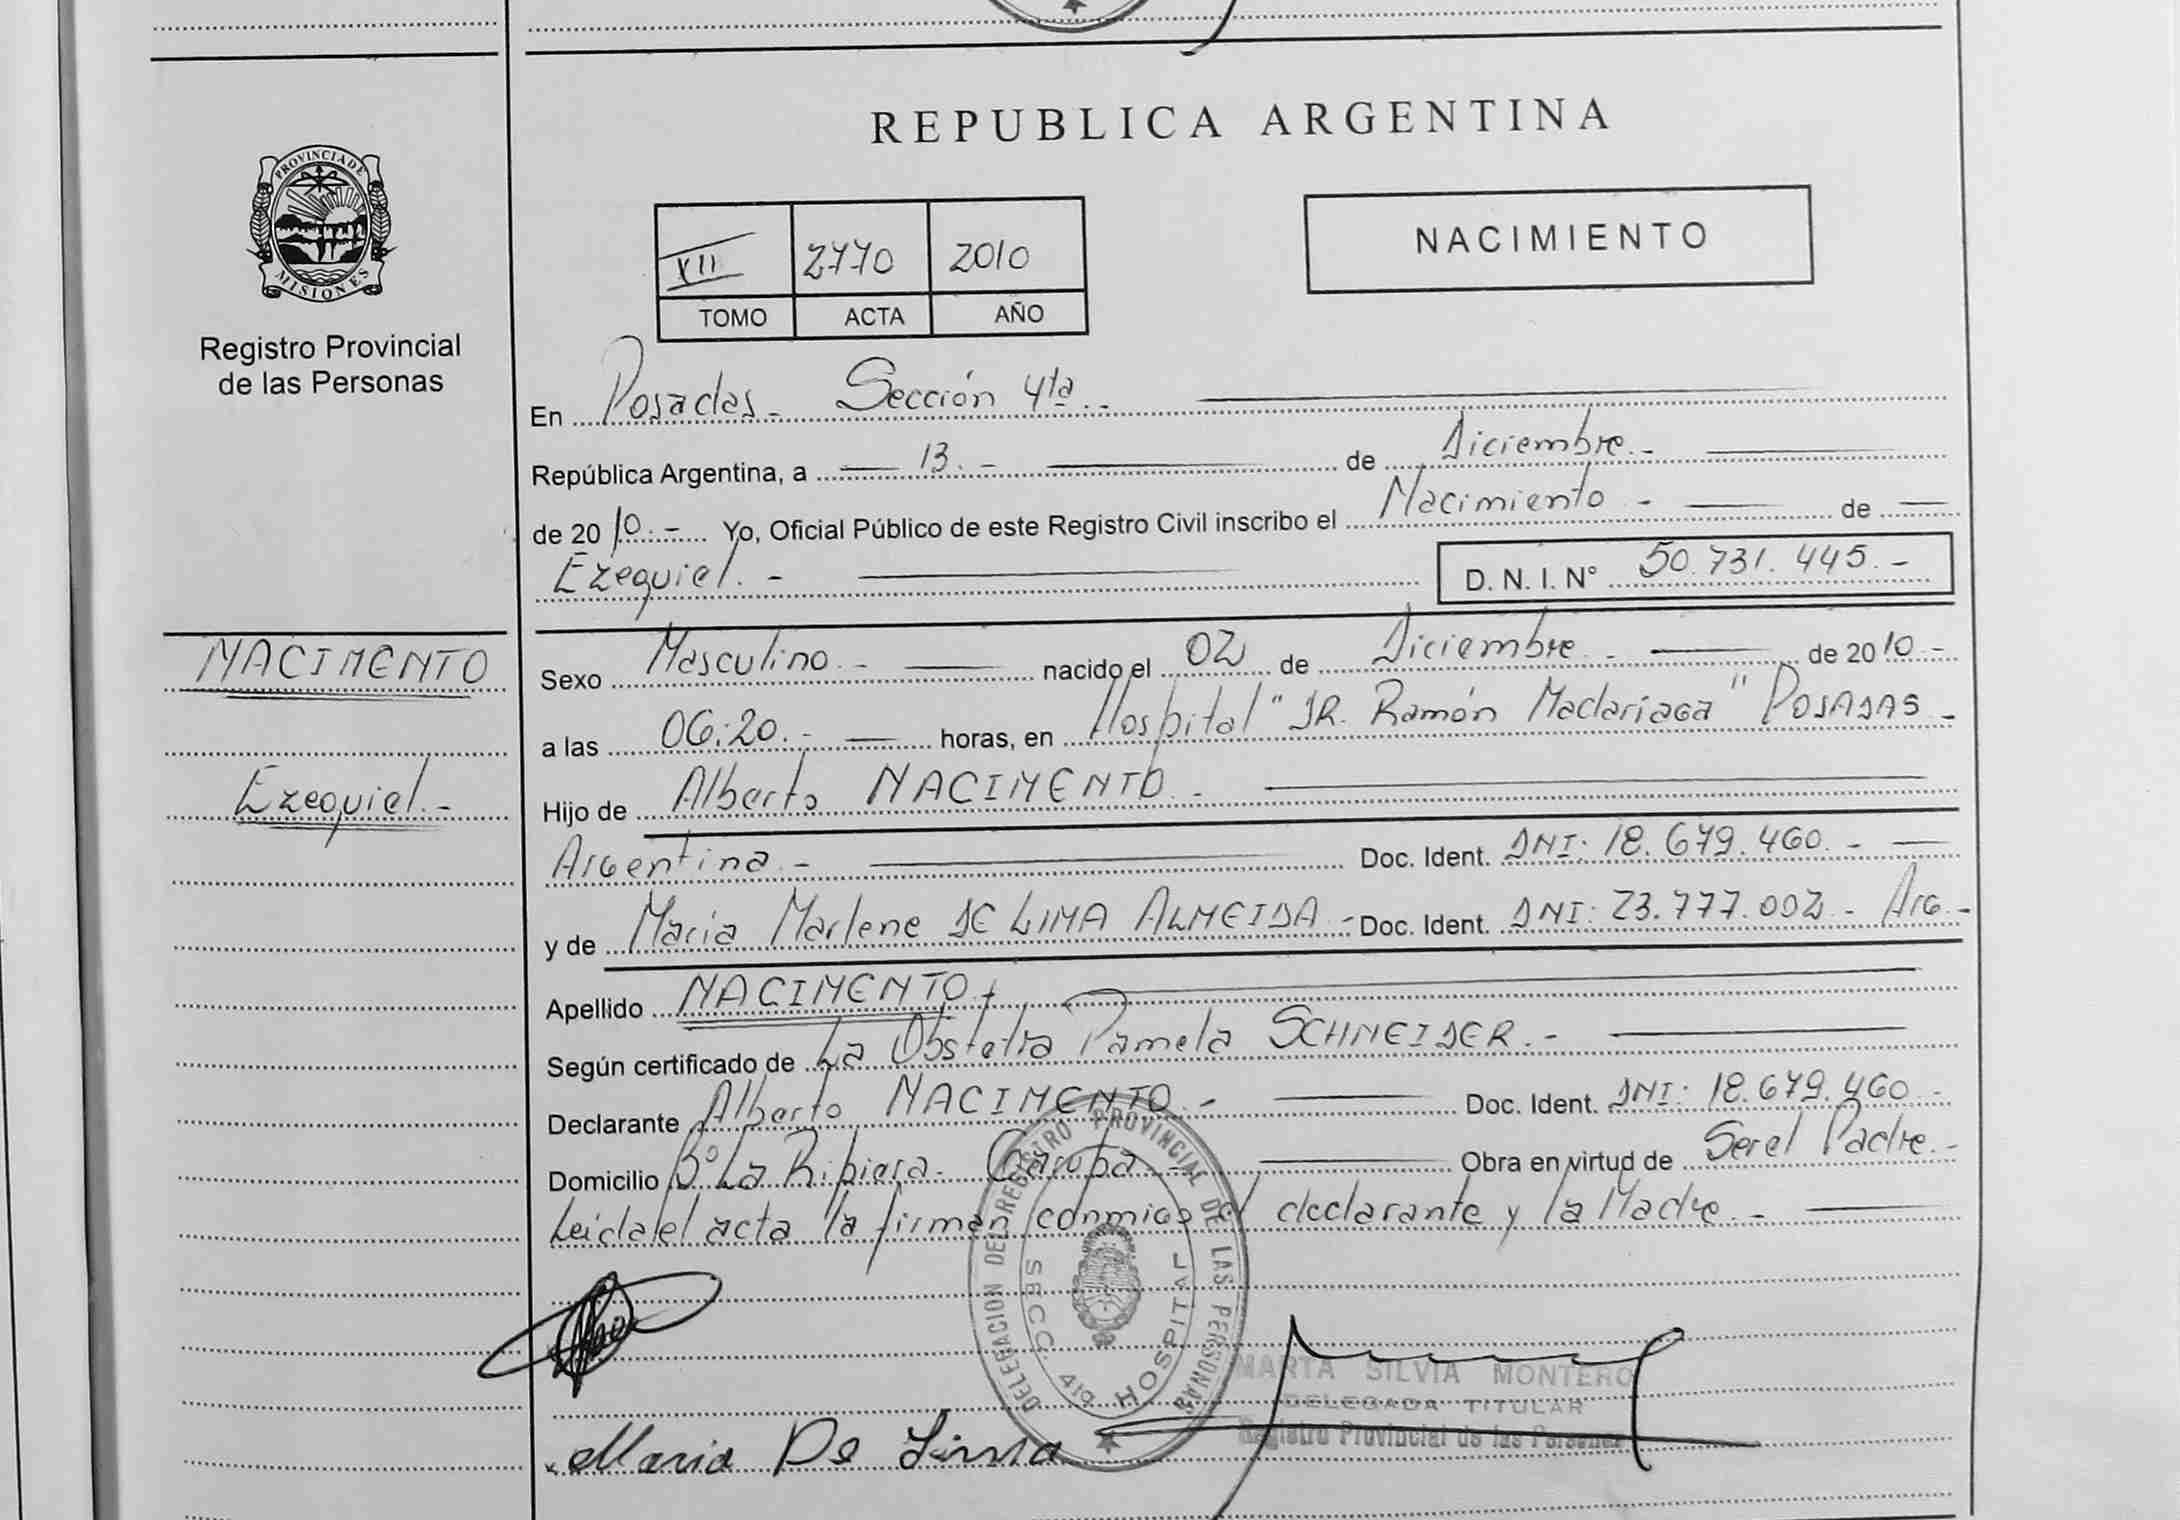 REPUBLICA ARGENTINA
PROVINCIA DE
MISIONES
Registro Provincial
de las Personas
XII 2770 2010
TOMO ACTA AÑO
NACIMIENTO
En Posadas - Sección 4ta. -
República Argentina, a 13. - de Diciembre. -
de 2010. - Yo, Oficial Público de este Registro Civil inscribo el Nacimiento - de
Ezequiel. - D. N. I. N° 50.731.445. -
NACIMENTO
Ezequiel. -
Sexo Masculino. - nacido el 02 de Diciembre. - de 2010. -
a las 06:20. - horas, en Hospital "DR. Ramón Madariaga" POSADAS -
Hijo de Alberto NACIMENTO. -
Argentina. - Doc. Ident. DNI: 18.679.460. -
y de Maria Marlene DE LIMA ALMEIDA - Doc. Ident. DNI: 23.777.002 - Arg. -
Apellido NACIMENTO
Según certificado de La Obstetra Pamela SCHNEIDER. -
Declarante Alberto NACIMENTO. - Doc. Ident. DNI: 18.679.460 -
Domicilio B° La Ribiera - Garupa - Obra en virtud de Ser el Padre. -
Leida el acta la firman conmigo el declarante y la Madre. -
DELEGACION DEL REGISTRO PROVINCIAL DE LAS PERSONAS
SECC. 4ta HOSPITAL
MARTA SILVIA MONTERO
DELEGADA TITULAR
Registro Provincial de las Personas
Maria De Lima